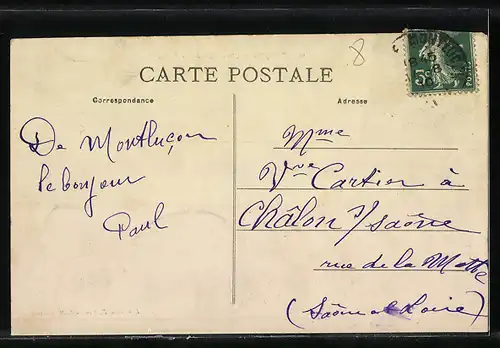 8
CARTE POSTALE
Correspondance
Adresse
5c
De Montluçon
le bonjour
Paul
Mme
Vve Cartier à
Châlon s/saône
rue de la Mothe
(Saône et Loire)